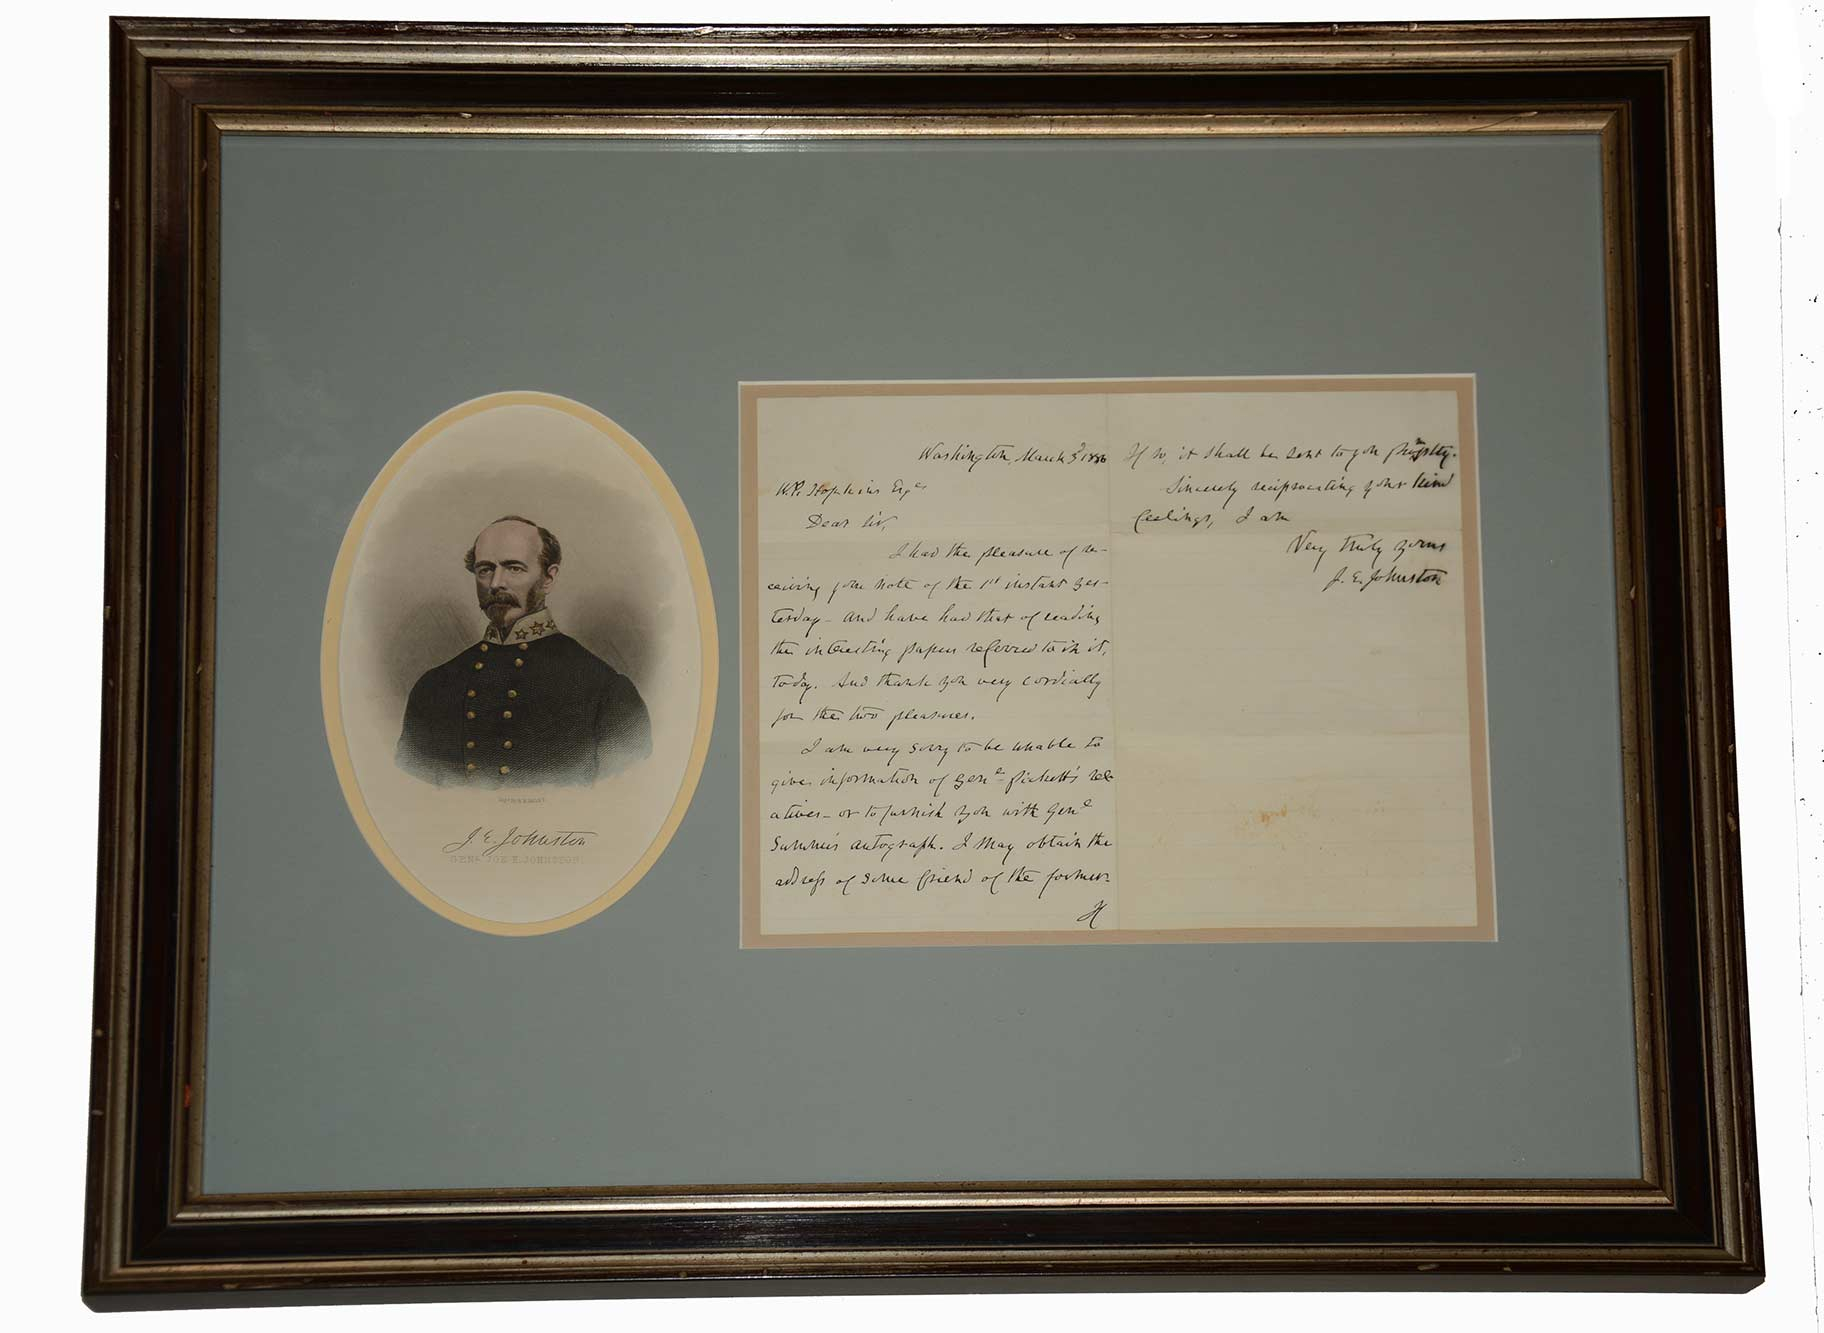 J. E. Johnston
GENL JOE E. JOHNSTON.
Washington, March 3d 1886
W. P. Hopkins Esqr
Dear Sir,
I had the pleasure of re-
ceiving your note of the 1st instant yes-
terday - and have had that of reading
the interesting papers referred to in it,
today. And thank you very cordially
for the two pleasures.
I am very sorry to be unable to
give information of Genl Pickett's rel-
atives - or to furnish you with Genl
autograph. I may obtain the
address of some friend of the former.
If
If so, it shall be sent to you promptly.
Sincerely reciprocating your kind
feelings, I am
Very truly yours
J. E. Johnston